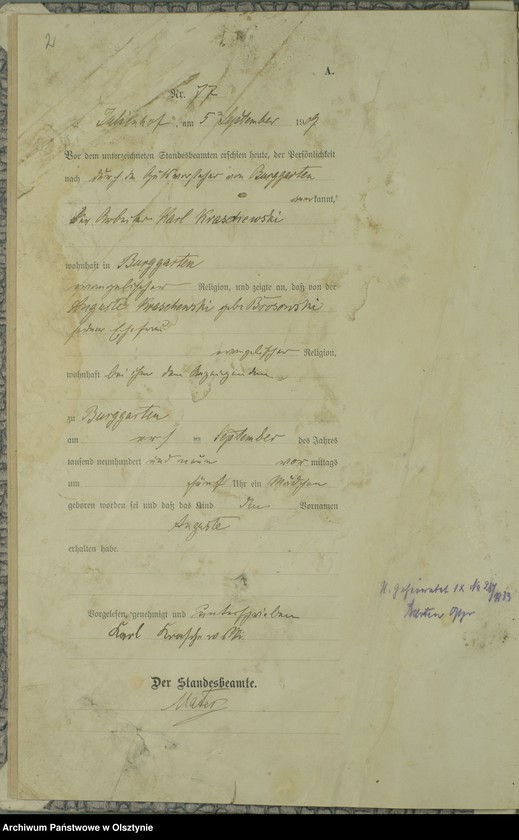 2
A.
Nr. 77
am 5 September 1909
Vor dem unterzeichneten Standesbeamten erschien heute, der Persönlichkeit
nach durch den Gutsvorsteher von Burggarten
kannt,
der Arbeiter Karl Kraschewski
wohnhaft in Burggarten
evangelischer Religion, und zeigte an, daß von der
Auguste Kraschewski geb. Brosowski
seiner Ehefrau
evangelischer Religion,
wohnhaft bei ihm dem Anzeigenden
zu Burggarten
am September des Jahres
tausend neunhundert und neun vor mittags
um fünf Uhr ein Mädchen
geboren worden sei und daß das Kind den Vornamen
Auguste
erhalten habe.
Vorgelesen, genehmigt und unterschrieben
Karl Kraschewski
Der Standesbeamte.
Archiwum Państwowe w Olsztynie